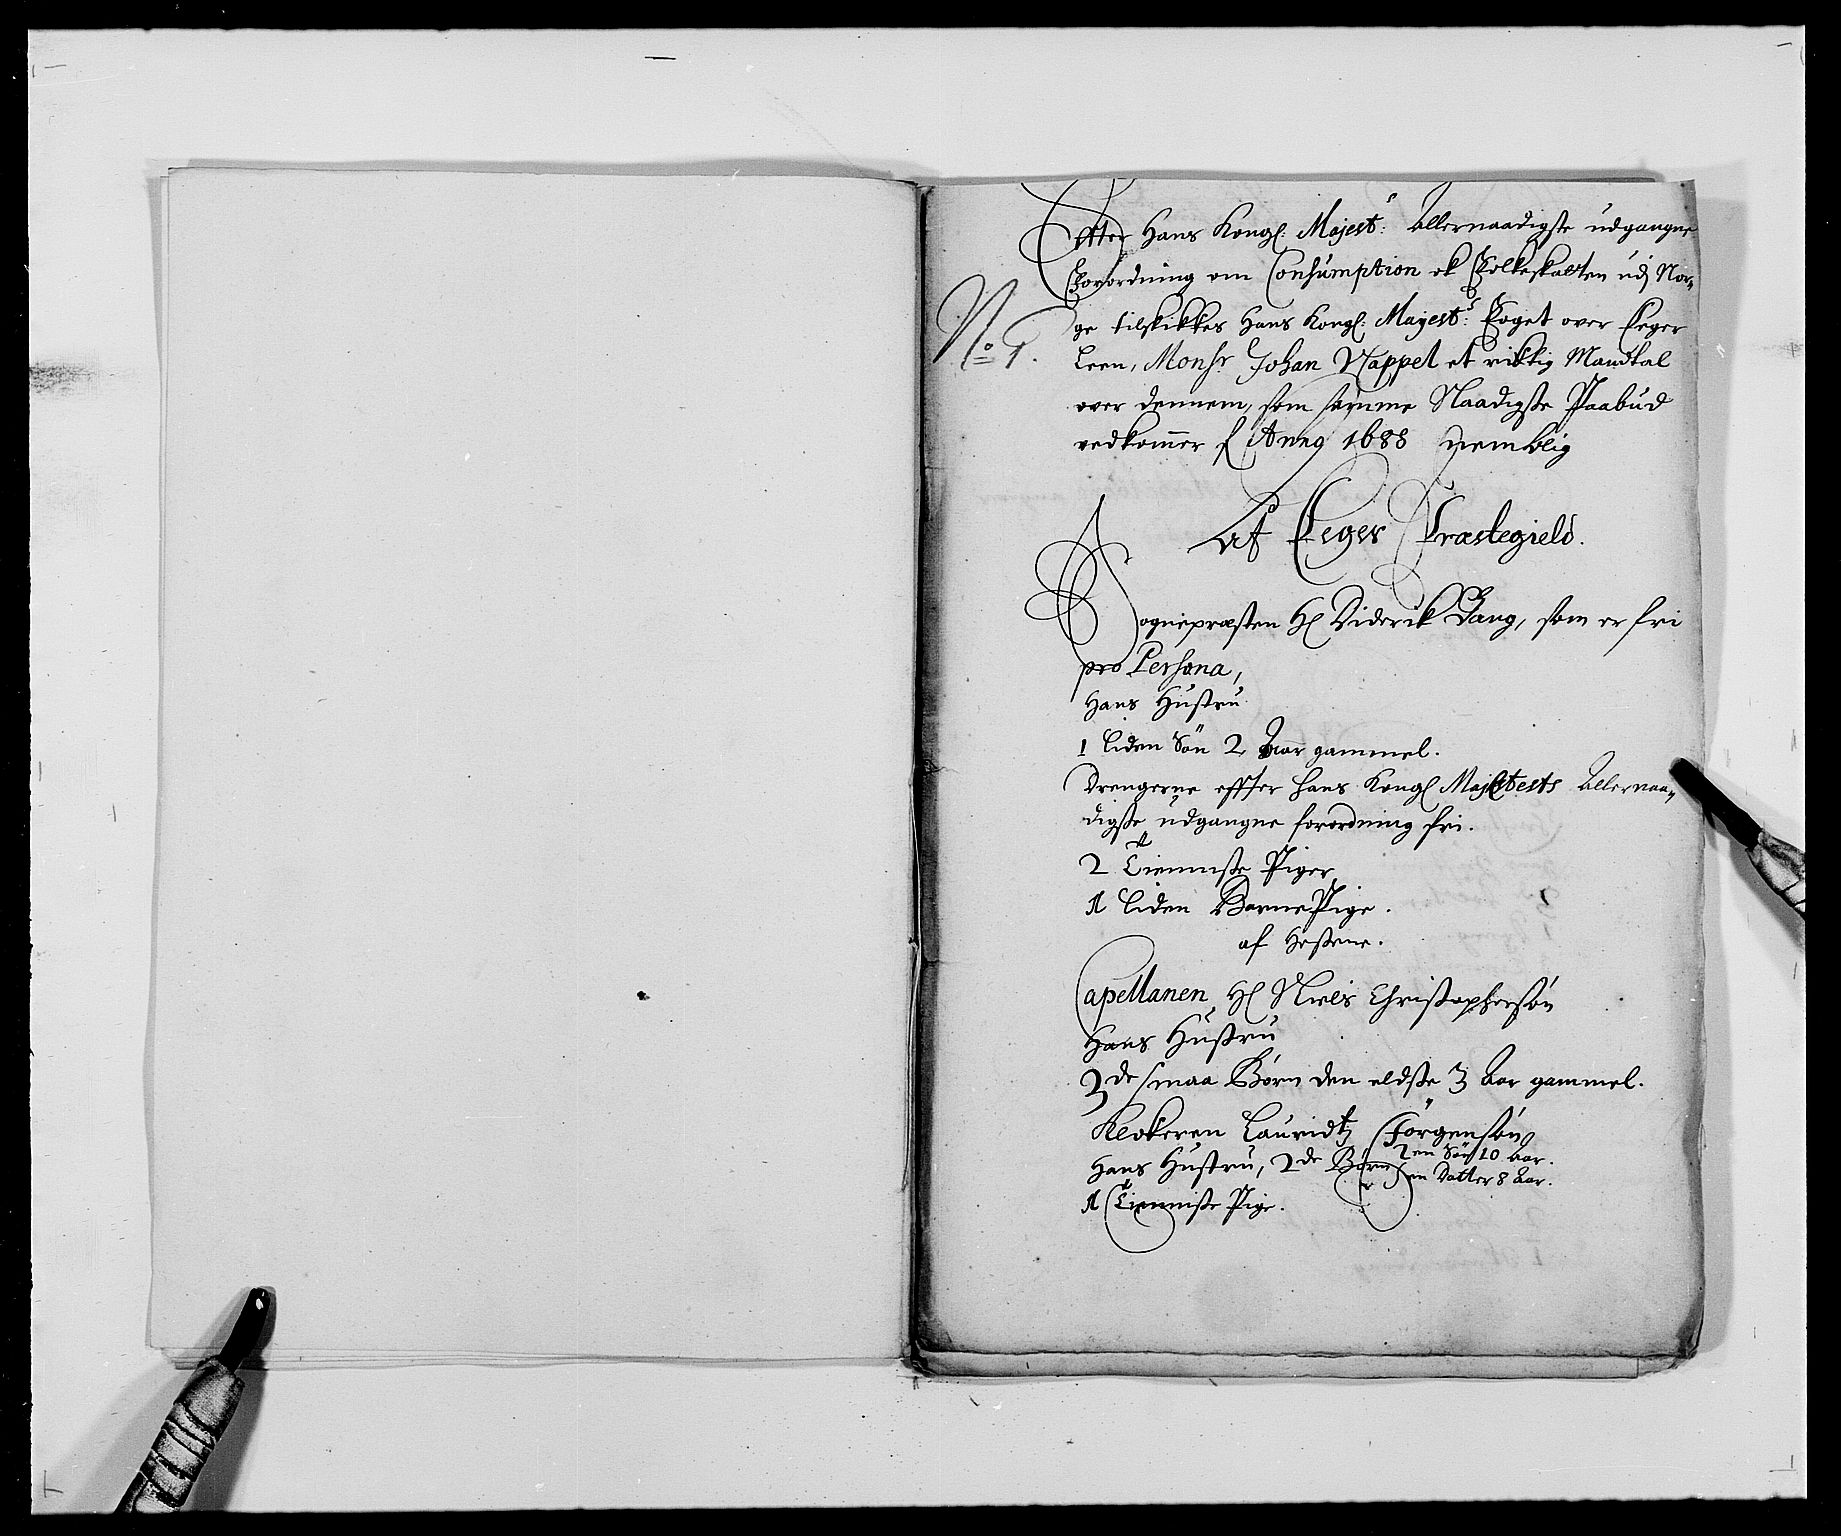 Efter Hans Kongl: Majest:s Allernaadigste udgangne
Forordning om Consumption ok Folkeskatten udj Nor-
No 1.
ge tilskikkes Hans Kongl: Mayest:s Foget over Eeger
Leen, Monsr Johan Nappel et riktig Mandtal
over dennem, som samme Naadigste Paabud
vedkommer f Anno 1688 Nemblig
Af Eeger Præstegield.
Sognepræsten Hl Diderik Bang, som er fri
pro Persona,
Hans Hustru
1 liden Sön 2 Aar gammel.
Drengerne effter Hans Kongl Majestests Allernaa-
digste udgangne forordning fri.
2 Tienniste Piger
1 liden BarnePige.
af Hestene.
Capellanen Hl Niels Christophersön
Hans Hustru
3de smaa Börn den eldste 3 Aar gammel.
Klokeren Lauridtz Jörgensön
Hans Hustru, 2de Börn en Sön 10 Aar.
en Datter 8 Aar.
1 Tienniste Pige.